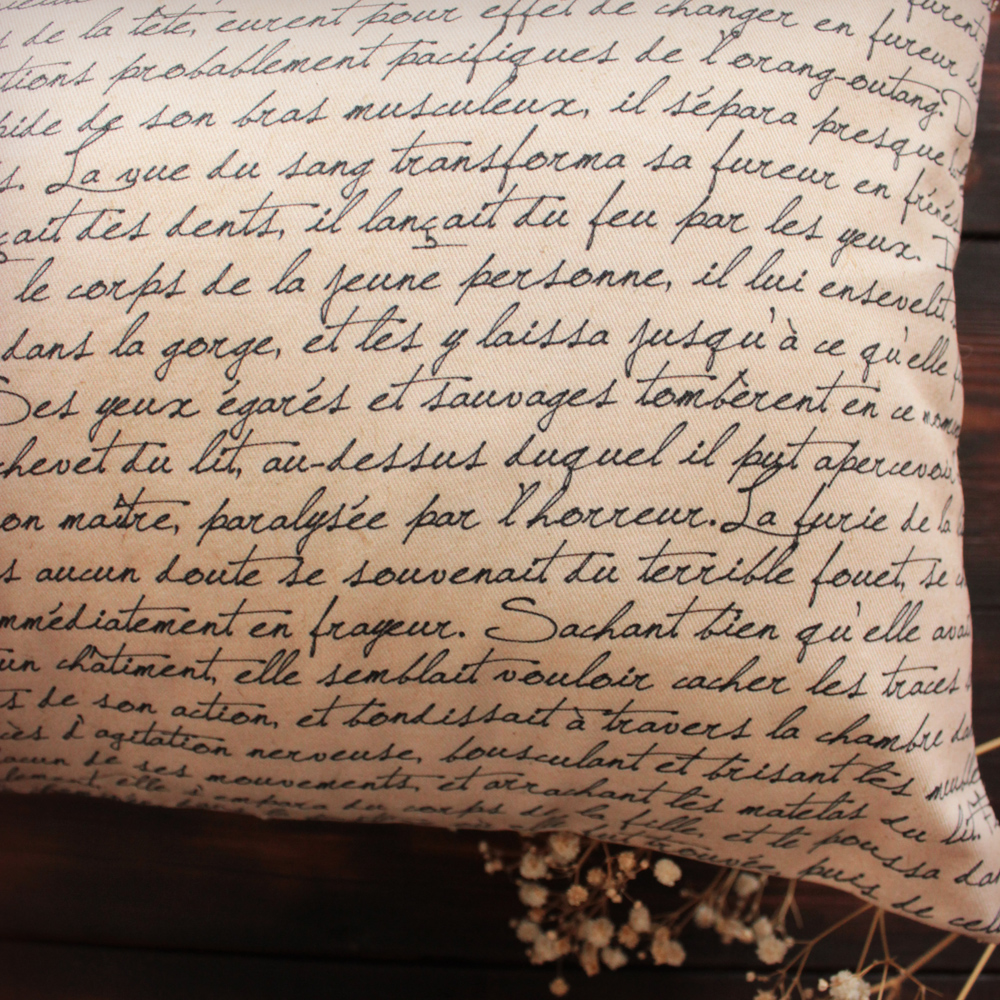 de la tête, eurent pour effet de changer en fureur les
tions probablement pacifiques de l'orang-outang. D
pide de son bras musculeux, il sépara presque
s. La vue du sang transforma sa fureur en fréné
çait des dents, il lançait du feu par les yeux.
le corps de la jeune personne, il lui ensevelit
dans la gorge, et les y laissa jusqu'à ce qu'elle
Ses yeux égarés et sauvages tombèrent en ce mom
chevet du lit, au-dessus duquel il put apercevoi
on maître, paralysée par l'horreur. La furie de la
s aucun doute se souvenait du terrible fouet, se
mmédiatement en frayeur. Sachant bien qu'elle avait
un châtiment, elle semblait vouloir cacher les traces
s de son action, et bondissait à travers la chambre da
cès d'agitation nerveuse, bousculant et brisant les meubles
acun de ses mouvements, et arrachant les matelas du lit.
lement, elle s'empara du corps de la fille, et le poussa dan
trouvée, puis de cel